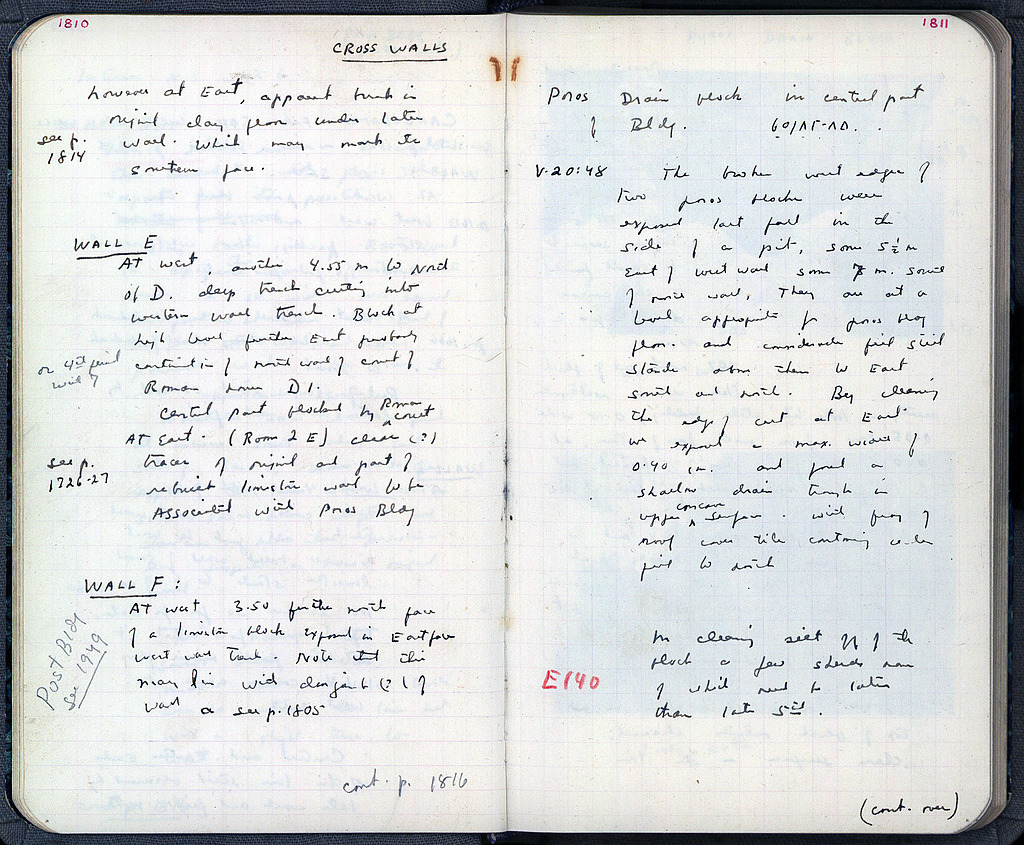 1810
CROSS WALLS
however at East, apparent break in
original clay floor under later
see p. 1814
wall. which may mark the
southern face.
WALL E
At west, another 4.55 m to North
of D. deep trench cutting into
western wall trench. Block at
high level further East probably
or 4th period
continuation of north wall of court of
Roman house D1.
Central part blocked by Roman court
AT East. (Room 2 E) clear (?)
see p. 1726-27
traces of original and part of
rebuilt limestone wall to be
Associated with Poros Bldg
WALL F:
At west 3.50 further north face
of a limestone block exposed in East face
west wall trench. Note that this
may line with (?) of
wall a see p. 1805
Post Bldg
See 1949
cont. p. 1816
1811
Poros Drain block in central part
of Bldg. 60/ΛΕ-ΛΔ.
V-20:48 The broken west edges of
two poros blocks were
exposed last fall in the
side of a pit, some 5½ m
East of west wall some 7 m. south
of north wall, They are at a
level appropriate for poros bldg
floor. and considerable fill still
stands above them to East
south and north. By cleaning
the edge of cut at East
we exposed a max. width of
0.40 m. and found a
shallow drain trough in
upper concave surface. with frag of
roof cover tile continuing
to north
In cleaning silt off of the
block a few sherds none
E140
of which need be later
than late 5th.
(cont. over)